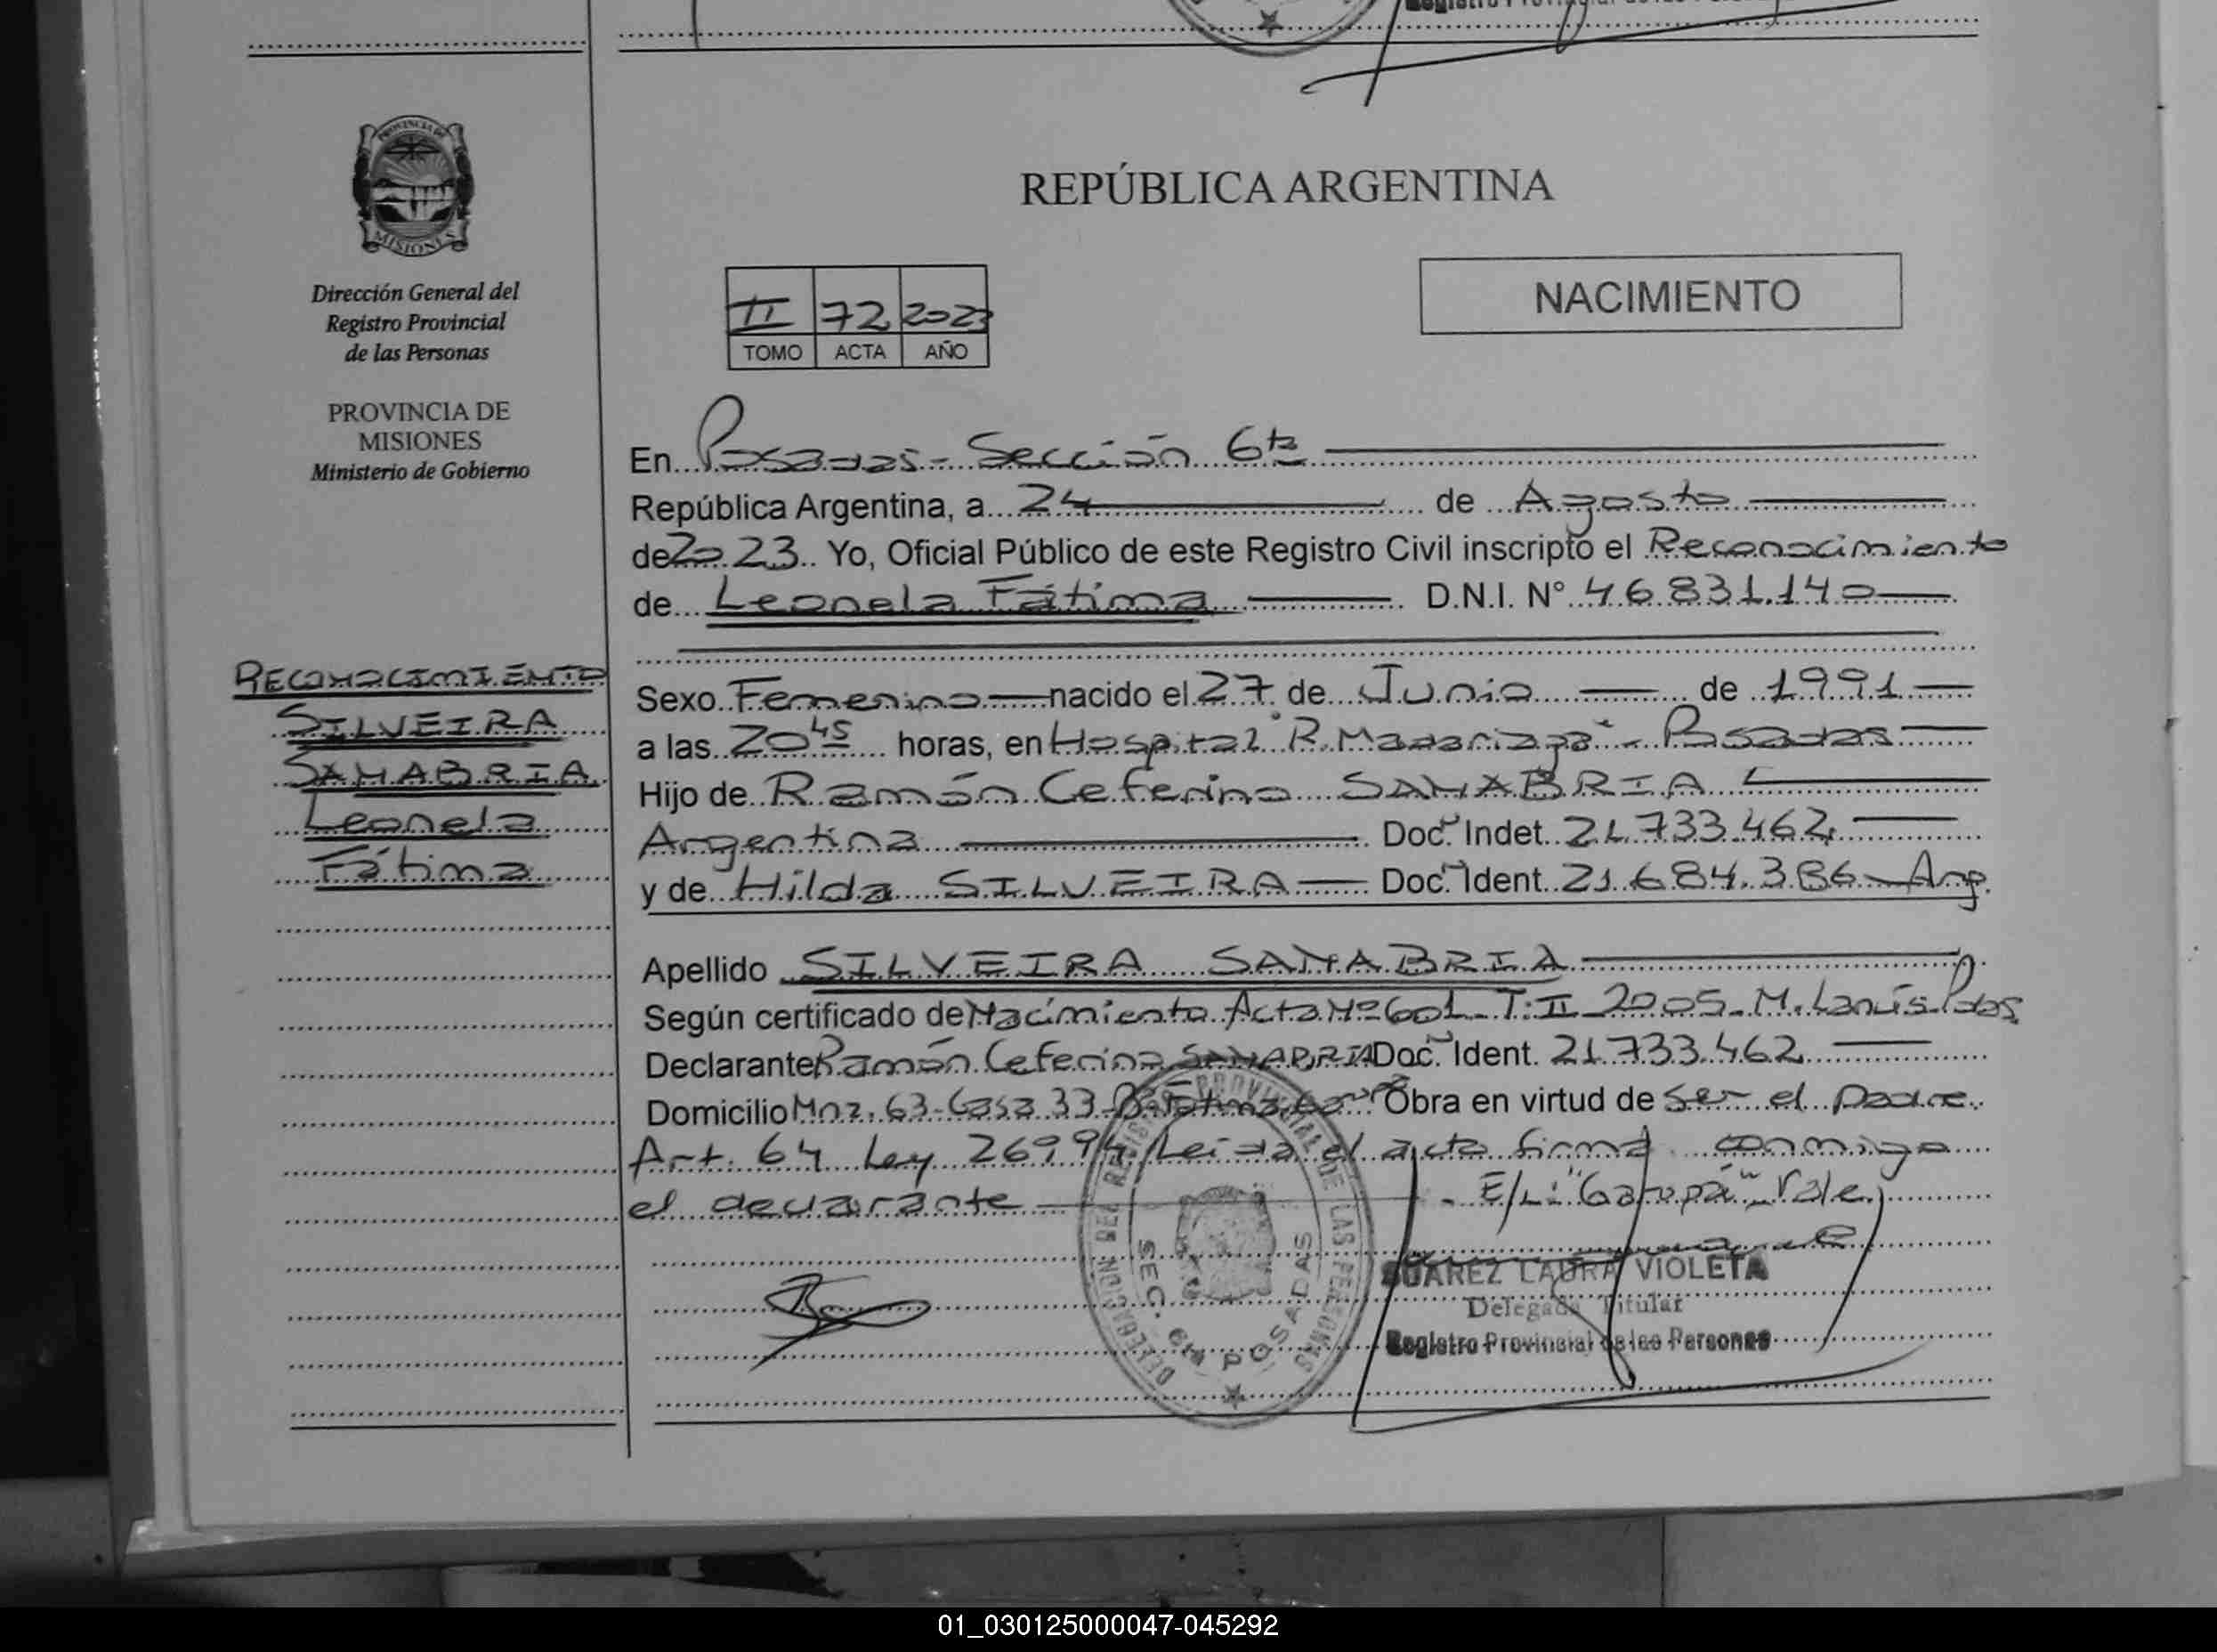 PROVINCIA DE
MISIONES
Dirección General del
Registro Provincial
de las Personas
PROVINCIA DE
MISIONES
Ministerio de Gobierno
RECONOCIMIENTO
SILVEIRA
SANABRIA
Leonela
Fátima
REPÚBLICA ARGENTINA
NACIMIENTO
II 72 2023
TOMO ACTA AÑO
En Posadas - Sección 6ta
República Argentina, a 24 de Agosto
de 2023 Yo, Oficial Público de este Registro Civil inscripto el Reconocimiento
de Leonela Fátima D.N.I. N° 46831.140
Sexo Femenino nacido el 27 de Junio de 1991
a las 20 45 horas, en Hospital "R. Madariaga" - Posadas
Hijo de Ramón Ceferino SANABRIA
Argentina Doc. Indet. 21.733.462
y de Hilda SILVEIRA Doc. Ident. 21.684.386 - Arg.
Apellido SILVEIRA SANABRIA
Según certificado de Nacimiento Acta Nº 601 - T: II - 2005 - M. Lanús - Pdas
Declarante Ramón Ceferino SANABRIA Doc. Ident. 21.733.462
Domicilio Mnz. 63 - Casa 33 - Bº Fátima Obra en virtud de ser el padre
Art. 64 Ley 26994 Leida el acta firma conmigo
el declarante - E/L: "Garupá" - Vale
SUAREZ LAURA VIOLETA
Delegada Titular
Registro Provincial de las Personas
DELEGACION DEL REGISTRO PROVINCIAL DE LAS PERSONAS
SEC. 6ta POSADAS
01_030125000047-045292